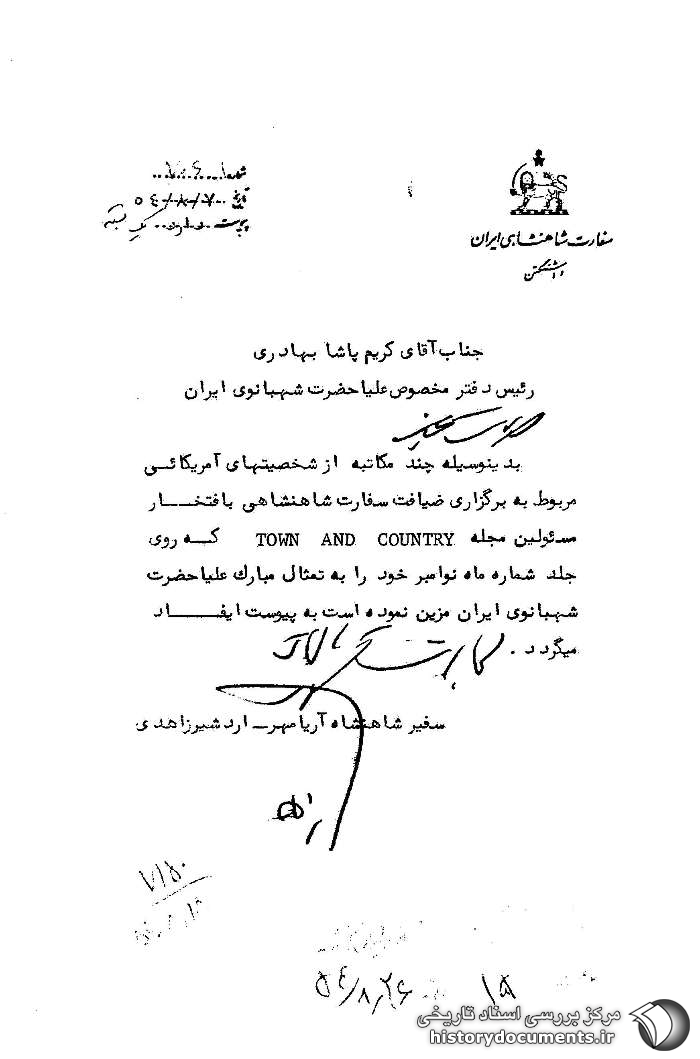 سفارت شاهنشاهی ایران
واشنگتن
شماره
تاریخ ۵۴/۸/۷
پیوست
جناب آقای کریم پاشا بهادری
رئیس دفتر مخصوص علیاحضرت شهبانوی ایران
بدینوسیله چند مکاتبه از شخصیتهای آمریکائی
مربوط به برگزاری ضیافت سفارت شاهنشاهی بافتخار
مسئولین مجله TOWN AND COUNTRY که روی
جلد شماره ماه نوامبر خود را به تمثال مبارک علیاحضرت
شهبانوی ایران مزین نموده است به پیوست ایفاد
میگردد .
سفیر شاهنشاه آریامهر ـ اردشیر زاهدی
۷۱۵۰
۵۴/۸/۲۶ ۱۵
مرکز بررسی اسناد تاریخی
historydocuments.ir